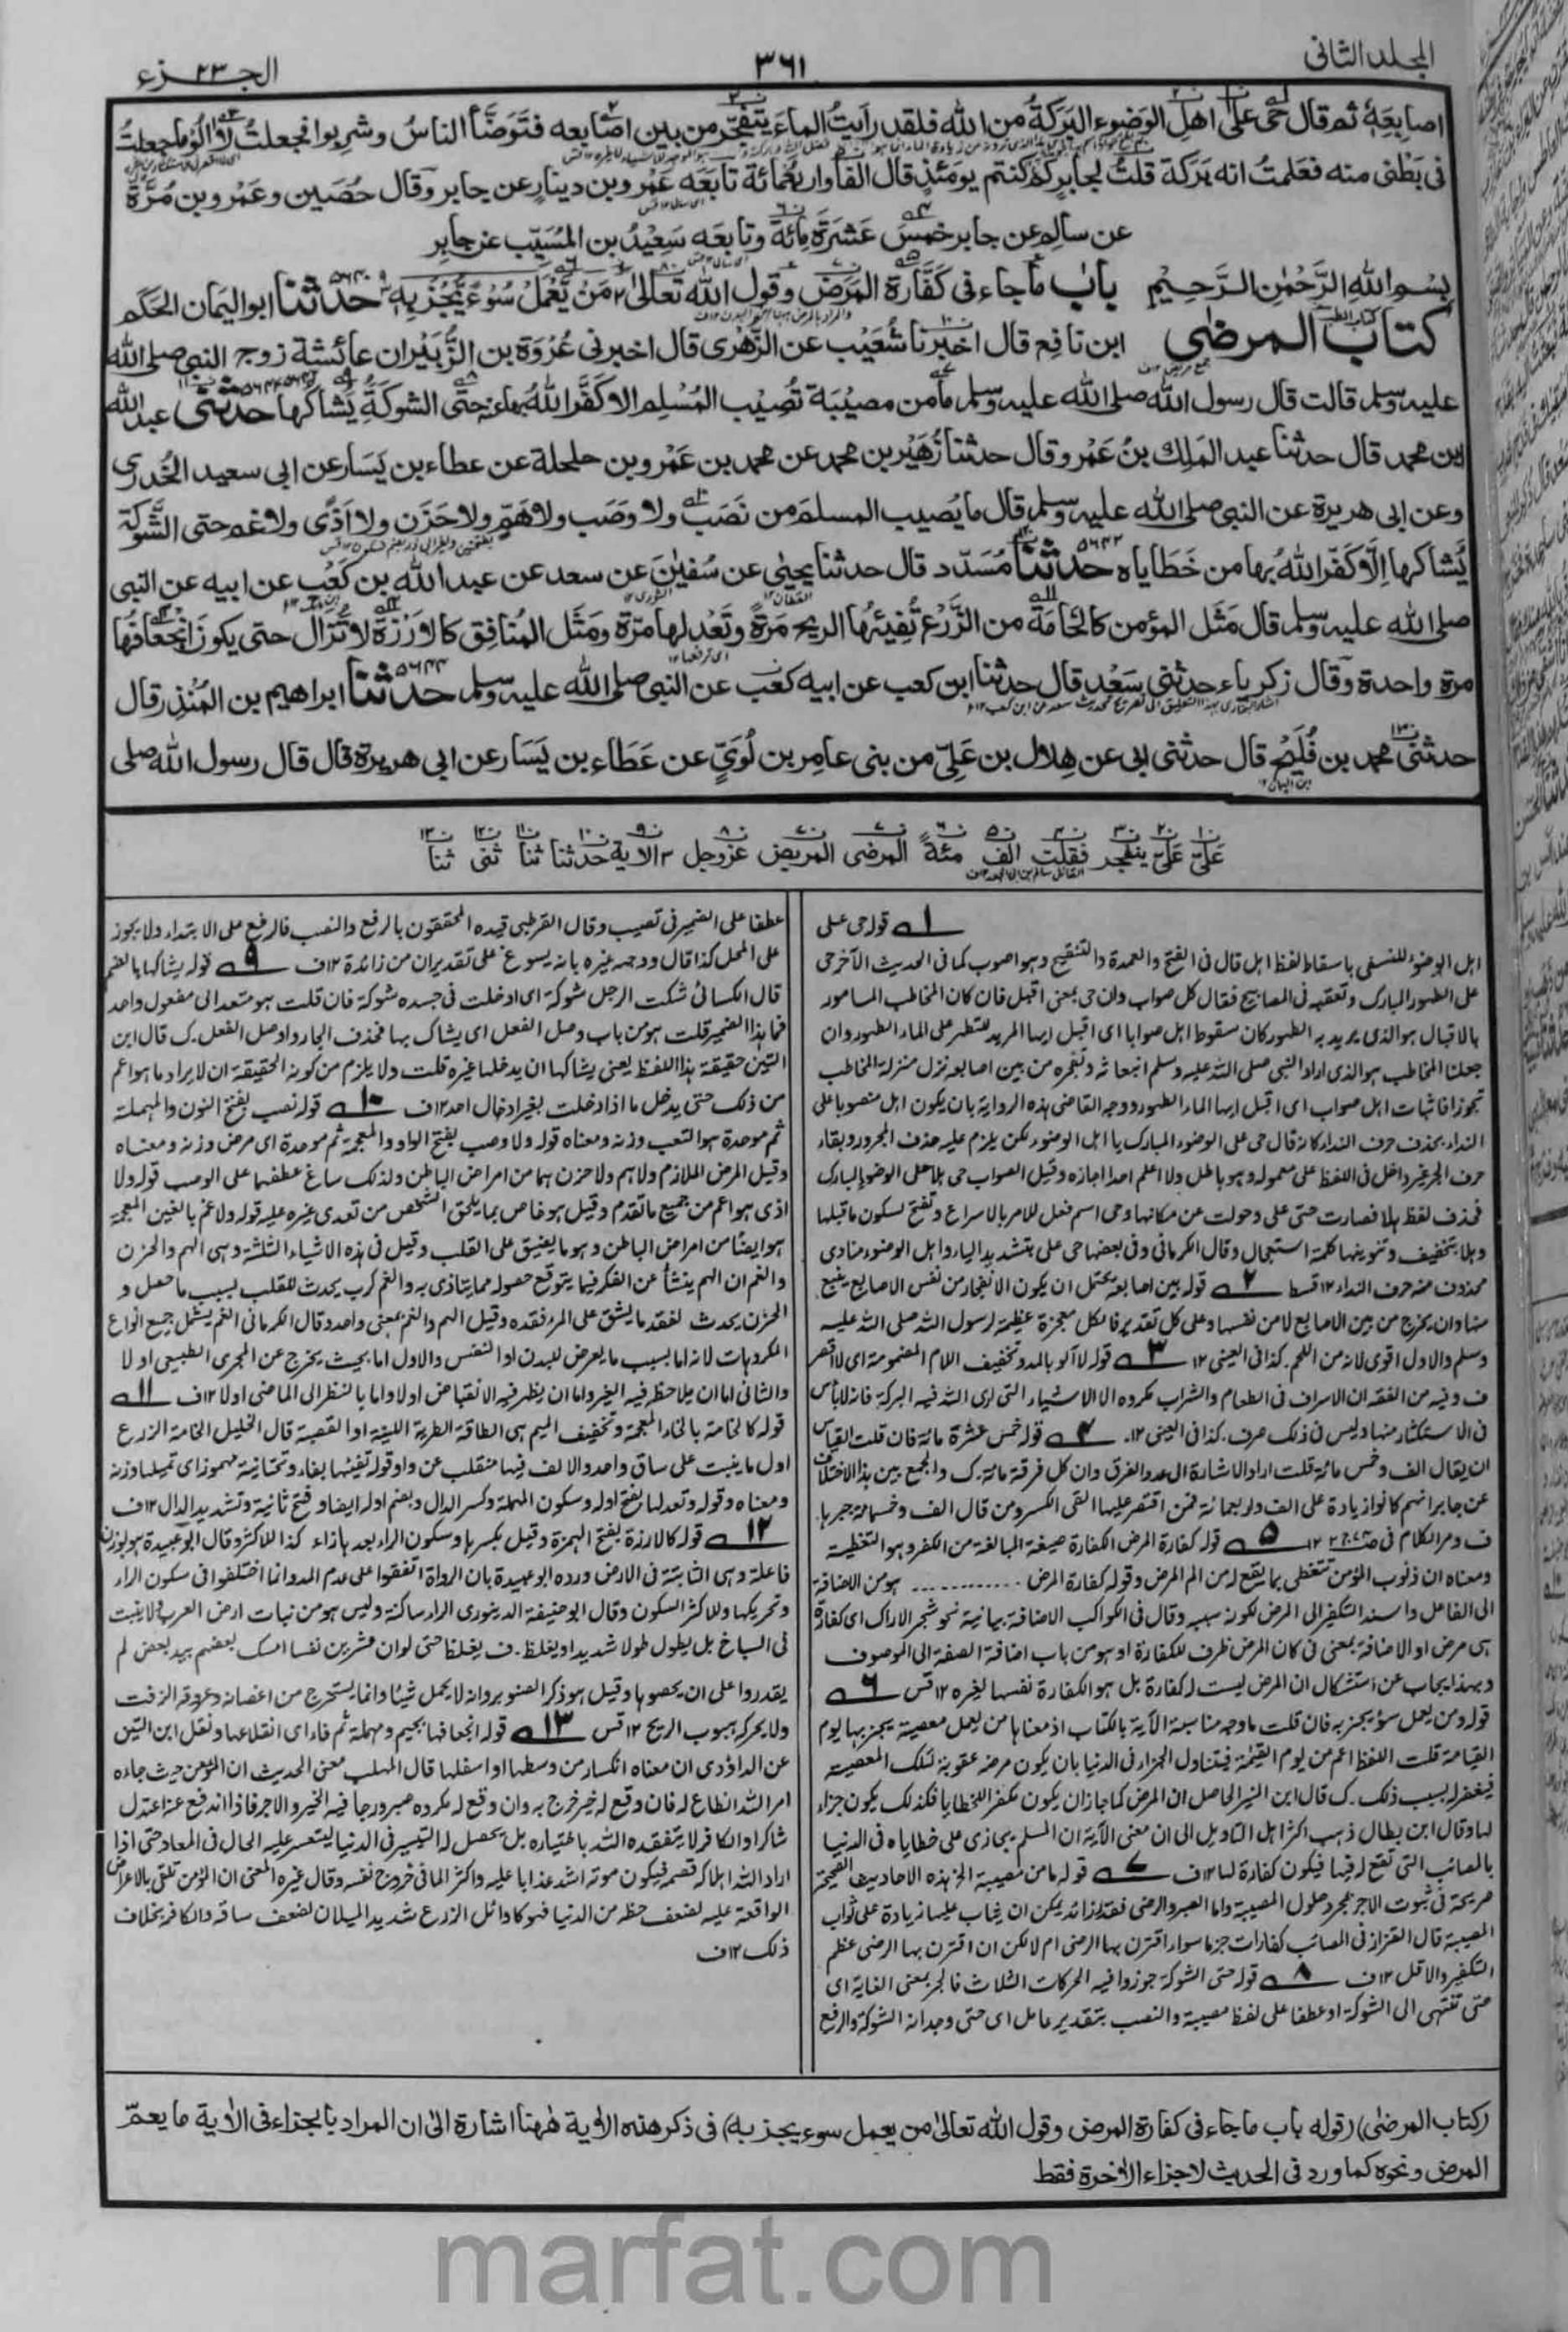 المجلد الثانی
٣٦١
الجـ٢٣ـزء
اصابعَهٗ ثم قال حَیَّ علیٰ اھلِ الوَضوء البَرَکةُ من الله فلقد رأیتُ الماءَ یتفجّر من بین اصابعه فتَوَضّأ الناسُ وشرِبوا فجعلتُ لا اٰلُو ما جعلتُ
فی بَطْنی منه فعَلِمتُ انه بَرَکة قلتُ لجابر کم کنتم یومَئذٍ قال الفا واربعُمائة تابَعَه عَمْرو بن دینارٍ عن جابر وقال حُصَین وعَمْرو بن مُرَّة
عن سالم عن جابر خمسَ عَشَرَةَ مِائةً وتابعَه سَعِیْدُ بن المُسَیّب عن جابرٍ
بِسْمِ اللهِ الرَّحْمٰنِ الرَّحِیْمِ باب ما جاء فی کَفَّارة المَرَض وقول الله تَعالیٰ مَنْ یَّعْمَلْ سُوْءً یُّجْزَ بِهٖ حدثنا ابو الیَمان الحَکَم
کتاب المرضٰی ابن نافع قال اخبرنا شُعَیْب عن الزُّهْری قال اخبرنی عُرْوَة بن الزُّبَیْر ان عائشة زوج النبی صلی الله
علیه وسلم قالت قال رسول الله صلی الله علیه وسلم ما من مصیْبَة تُصِیْب المُسْلِم الا کَفَّر اللهُ بها عنه حتَّی الشوکَةُ یُشاکُها حدثنی عبد الله
ابن محمد قال حدثنا عبد المَلِك بنُ عَمْرو قال حدثنا زُهَیْر بن محمد عن محمد بن عَمْرو بن حلحلة عن عطاء بن یَسَار عن ابی سعید الخُدری
وعن ابی هریرة عن النبی صلی الله علیه وسلم قال ما یُصیب المسلمَ من نَصَب ولا وصَب ولا هَمّ ولا حَزَن ولا اَذًی ولا غم حتی الشَّوکة
یُشاکها اِلّا کَفَّر اللهُ بها من خَطَایاه حدثنا مُسَدّد قال حدثنا یحیٰی عن سُفیٰنَ عن سعد عن عبد الله بن کَعْب عن ابیه عن النبی
صلی الله علیه وسلم قال مَثَل المؤمن کالخَامَة من الزَّرْع تُفِیئُها الریح مَرَّةً وتَعْدِلها مَرّة ومَثَل المُنافِق کالاَرْزَة لا تَزال حتی یکونَ انْجِعافُها
مرة واحدة وقال زکریاء حدثنی سَعْد قال حدثنا ابن کعب عن ابیه کعْب عن النبی صلی الله علیه وسلم حدثنا ابراهیم بن المُنْذِر قال
حدثنی محمد بن فُلَیْح قال حدثنی ابی عن هِلال بن عَلِیّ من بنی عامِر بن لُوَیٍّ عن عَطَاء بن یَسَار عن ابی هریرة قال قال رسول الله صلی
عَلَیَّ عَلَیَّ ینفجر فقلت الف مئةً المرضی المریض عزوجل الاٰیة حدثنا ثنا ثنی ثنا
١ قوله حی علی
اہل الوضوء للنسفی باسقاط لفظ اہل قال فی الفتح والعمدة والتنقیح وہو اصوب کما فی الحدیث الآخر حی
علی الطہور المبارک وتعقبه فی المصابیح فقال کل صواب وان حی بمعنی اقبل فان کان المخاطب المامور
بالاقبال ہو الذی یرید به الطہور کان سقوط اہل صوابا ای اقبل ایہا المرید للتطہر علی الماء الطہور وان
جعلنا المخاطب ہو الذی اراد النبی صلی الله علیه وسلم انبعاثه وتفجره من بین اصابعه نزل منزلة المخاطب
تجوزا فاثبات اہل صواب ای اقبل ایہا الماء الطہور ووجه القاضی ہذه الروایة بان یکون اہل منصوبا علی
النداء بحذف حرف النداء کانه قال حی علی الوضوء المبارک یا اہل الوضوء لکن یلزم علیه حذف المجرور وبقاء
حرف الجر غیر داخل فی اللفظ علی معموله وہو باطل ولا اعلم احدا اجازه وقیل الصواب حی ہلا علی الوضوء المبارک
فحذف لفظ ہلا فصارت حتی علی وحولت عن مکانہا وحی اسم فعل للامر بالاسراع وتفتح لسکون ما قبلہا
وہلا بتخفیف وتنوینہا کلمة استعجال وقال الکرمانی وفی بعضہا حی علی بتشدید الیاء واہل الوضوء منادی
محذوف منه حرف النداء ١٢ قسط ٢ قوله بین اصابعه یحتمل ان یکون الانفجار من نفس الاصابع ینبع
منہا وان یخرج من بین الاصابع لا من نفسہا وعلی کل تقدیر فالکل معجزة عظیمة لرسول الله صلی الله علیه
وسلم والاول اقوی لانه من اللحم. کذا فی العینی ١٢ ٣ قوله لا آلو بالمد وتخفیف اللام المضمومة ای لا اقصر
ف وفیه من الفقه ان الاسراف فی الطعام والشراب مکروه الا الاشیاء التی اری الله فیه البرکة فانه لا باس
فی الاستکثار منہا ولیس فی ذلک سرف. کذا فی العینی ١٢. ٤ قوله خمس عشرة مائة فان قلت القیاس
ان یقال الف وخمس مائة قلت اراد الاشارة الی عدد الفرق وان کل فرقة مائة. ک والجمع بین ہذا الاختلاف
عن جابر انہم کانوا زیادة علی الف واربعمائة فمن اقتصر علیہا القی الکسر ومن قال الف وخمسمائة جبرہا.
ف ومر الکلام فی ٥ قوله کفارة المرض الکفارة صیغة المبالغة من الکفر وہو التغطیة
ومعناه ان ذنوب المؤمن تتغطی بما یقع له من الم المرض وقوله کفارة المرض ............ ہو من الاضافة
الی الفاعل واسند التکفیر الی المرض لکونه سببه وقال فی الکواکب الاضافة بیانیة نحو شجر الاراک ای کفارة
ہی مرض او الاضافة بمعنی فی کان المرض ظرف للکفارة او ہو من باب اضافة الصفة الی الموصوف
وبہذا یجاب عن استشکال ان المرض لیست له کفارة بل ہو الکفارة نفسہا لغیره ١٢ قس ٦
قوله ومن یعمل سوء یجز به فان قلت ما وجه مناسبة الآیة بالکتاب اذ معناہا من یعمل معصیة یجز بہا یوم
القیامة قلت اللفظ اعم من یوم القیمة فیتناول الجزاء فی الدنیا بان یکون مرضه عقوبة لتلک المعصیة
فیغفر له بسبب ذلک. ک قال ابن المنیر الحاصل ان المرض کما جاز ان یکون مکفرا للخطایا فکذلک یکون جزاء
لہا وقال ابن بطال ذہب اکثر اہل التاویل الی ان معنی الآیة ان المسلم یجازی علی خطایاه فی الدنیا
بالمصائب التی تقع له فیہا فیکون کفارة لہا ١٢ ف ٧ قوله ما من مصیبة الخ ہذه الاحادیث الصحیحة
صریحة فی ثبوت الاجر بمجرد حصول المصیبة واما الصبر والرضی فقدر زائد یمکن ان یثاب علیہما زیادة علی ثواب
المصیبة قال القزاز فی المصائب کفارات جزما سواء اقترن بہا الرضی ام لا لکن ان اقترن بہا الرضی عظم
التکفیر والا قل ١٢ ف ٨ قوله حتی الشوکة جوزوا فیه الحرکات الثلاث فالجر بمعنی الغایة ای
حتی تنتہی الی الشوکة او عطفا علی لفظ مصیبة والنصب بتقدیر عامل ای حتی وجدانه الشوکة والرفع
عطفا علی الضمیر فی تصیب وقال القرطبی قیده المحققون بالرفع والنصب فالرفع علی الابتداء ولا یجوز
علی المحل کذا قال ووجہه غیره بانه یسوغ علی تقدیر ان من زائدة ١٢ ف ٩ قوله یشاکہا بالضم
قال الکسائی شکت الرجل شوکة ای ادخلت فی جسده شوکة فان قلت ہو متعد الی مفعول واحد
فما ہذا الضمیر قلت ہو من باب وصل الفعل ای یشاک بہا فحذف الجار واوصل الفعل. ک قال ابن
التین حقیقة ہذا اللفظ یعنی یشاکہا ان یدخلہا غیره قلت ولا یلزم من کونه الحقیقة ان لا یراد ما ہو اعم
من ذلک حتی یدخل ما اذا دخلت بغیر ادخال احد ١٢ ف ١٠ قوله نصب بفتح النون والمہملة
ثم موحدة ہو التعب وزنه ومعناه قوله ولا وصب بفتح الواو والمعجمة ثم موحدة ای مرض وزنه ومعناه
وقیل المرض الملازم ولا ہم ولا حزن ہما من امراض الباطن ولذلک ساغ عطفہما علی الوصب قوله ولا
اذی ہو اعم من جمیع ما تقدم وقیل ہو خاص بما یلحق الشخص من تعدی غیره علیه قوله ولا غم بالغین المعجمة
ہو ایضا من امراض الباطن وہو ما یضیق علی القلب وقیل فی ہذه الاشیاء الثلثة وہی الہم والحزن
والغم ان الہم ینشأ عن الفکر فیما یتوقع حصوله مما یتاذی به والغم کرب یحدث للقلب بسبب ما حصل و
الحزن یحدث لفقد ما یشق علی المرء فقده وقیل الہم والغم بمعنی واحد وقال الکرمانی الغم یشمل جمیع انواع
المکروہات لانه اما بسبب ما یعرض للبدن او النفس والاول اما بحیث یخرج عن المجری الطبیعی او لا
والثانی اما ان یلاحظ فیه الغیر واما ان یظہر فیه الانقباض او لا واما بالنظر الی الماضی او لا ١٢ ف ١١
قوله کالخامة بالخاء المعجمة وتخفیف المیم ہی الطاقة الطریة اللینة او القصبة قال الخلیل الخامة الزرع
اول ما ینبت علی ساق واحد والالف فیہا منقلب عن واو قوله تفیئہا بفاء وتحتانیة مہموز ای تمیلہا وزنه
ومعناه وقوله وتعدلہا بفتح اوله وسکون المہملة وکسر الدال وبضم اوله ایضا وفتح ثانیة وتشدید الدال ١٢ ف
١٢ قوله کالارزة بفتح الہمزة وقیل بکسرہا وسکون الراء بعدہا زاء کذا للاکثر وقال ابو عبیدة ہو بوزن
فاعلة وہی الثابتة فی الارض ورده ابو عبیدة بان الرواة اتفقوا علی عدم المد وانما اختلفوا فی سکون الراء
وتحریکہا وللاکثر السکون وقال ابو حنیفة الدینوری الراء ساکنة ولیس ہو من نبات ارض العرب ولا ینبت
فی السباخ بل یطول طولا شدیدا ویغلظ. ف یغلظا حتی لو ان عشرین نفسا امسک بعضہم بید بعض لم
یقدروا علی ان یحصوہا وقیل ہو ذکر الصنوبر وانه لا یحمل شیئا وانما یستخرج من اغصانه وعروقه الزفت
ولا یحرکه ہبوب الریح ١٢ قس ١٣ قوله انجعافہا بجیم ومہملة ثم فاء ای انقلاعہا ونقل ابن التین
عن الداؤدی ان معناه انکسار من وسطہا او اسفلہا قال المہلب معنی الحدیث ان المؤمن حیث جاءه
امر الله انطاع له فان وقع له خیر فرح به وان وقع له مکروه صبر ورجا فیه الخیر والاجر فاذا اندفع عنه اعتدل
شاکرا والکافر لا یتفقده الله باختیاره بل یحصل له التیسیر فی الدنیا لیتعسر علیه الحال فی المعاد حتی اذا
اراد الله اہلاکه قصمه فیکون موته اشد عذابا علیه واکثر الما فی خروج نفسه وقال غیره المعنی ان المؤمن تلقی بالاعراض
الواقعة علیه لضعف حظه من الدنیا فہو کاوائل الزرع شدید المیلان لضعف ساقه والکافر بخلاف
ذلک ١٢ ف
(کتاب المرضٰی) (قوله باب ما جاء فی کفارة المرض وقول الله تعالیٰ من یعمل سوء یجز به) فی ذکر هذه الاٰیة ههنا اشارة الیٰ ان المراد بالجزاء فی الاٰیة ما یعمّ
المرض ونحوه کما ورد فی الحدیث لا جزاء الاٰخرة فقط
marfat.com